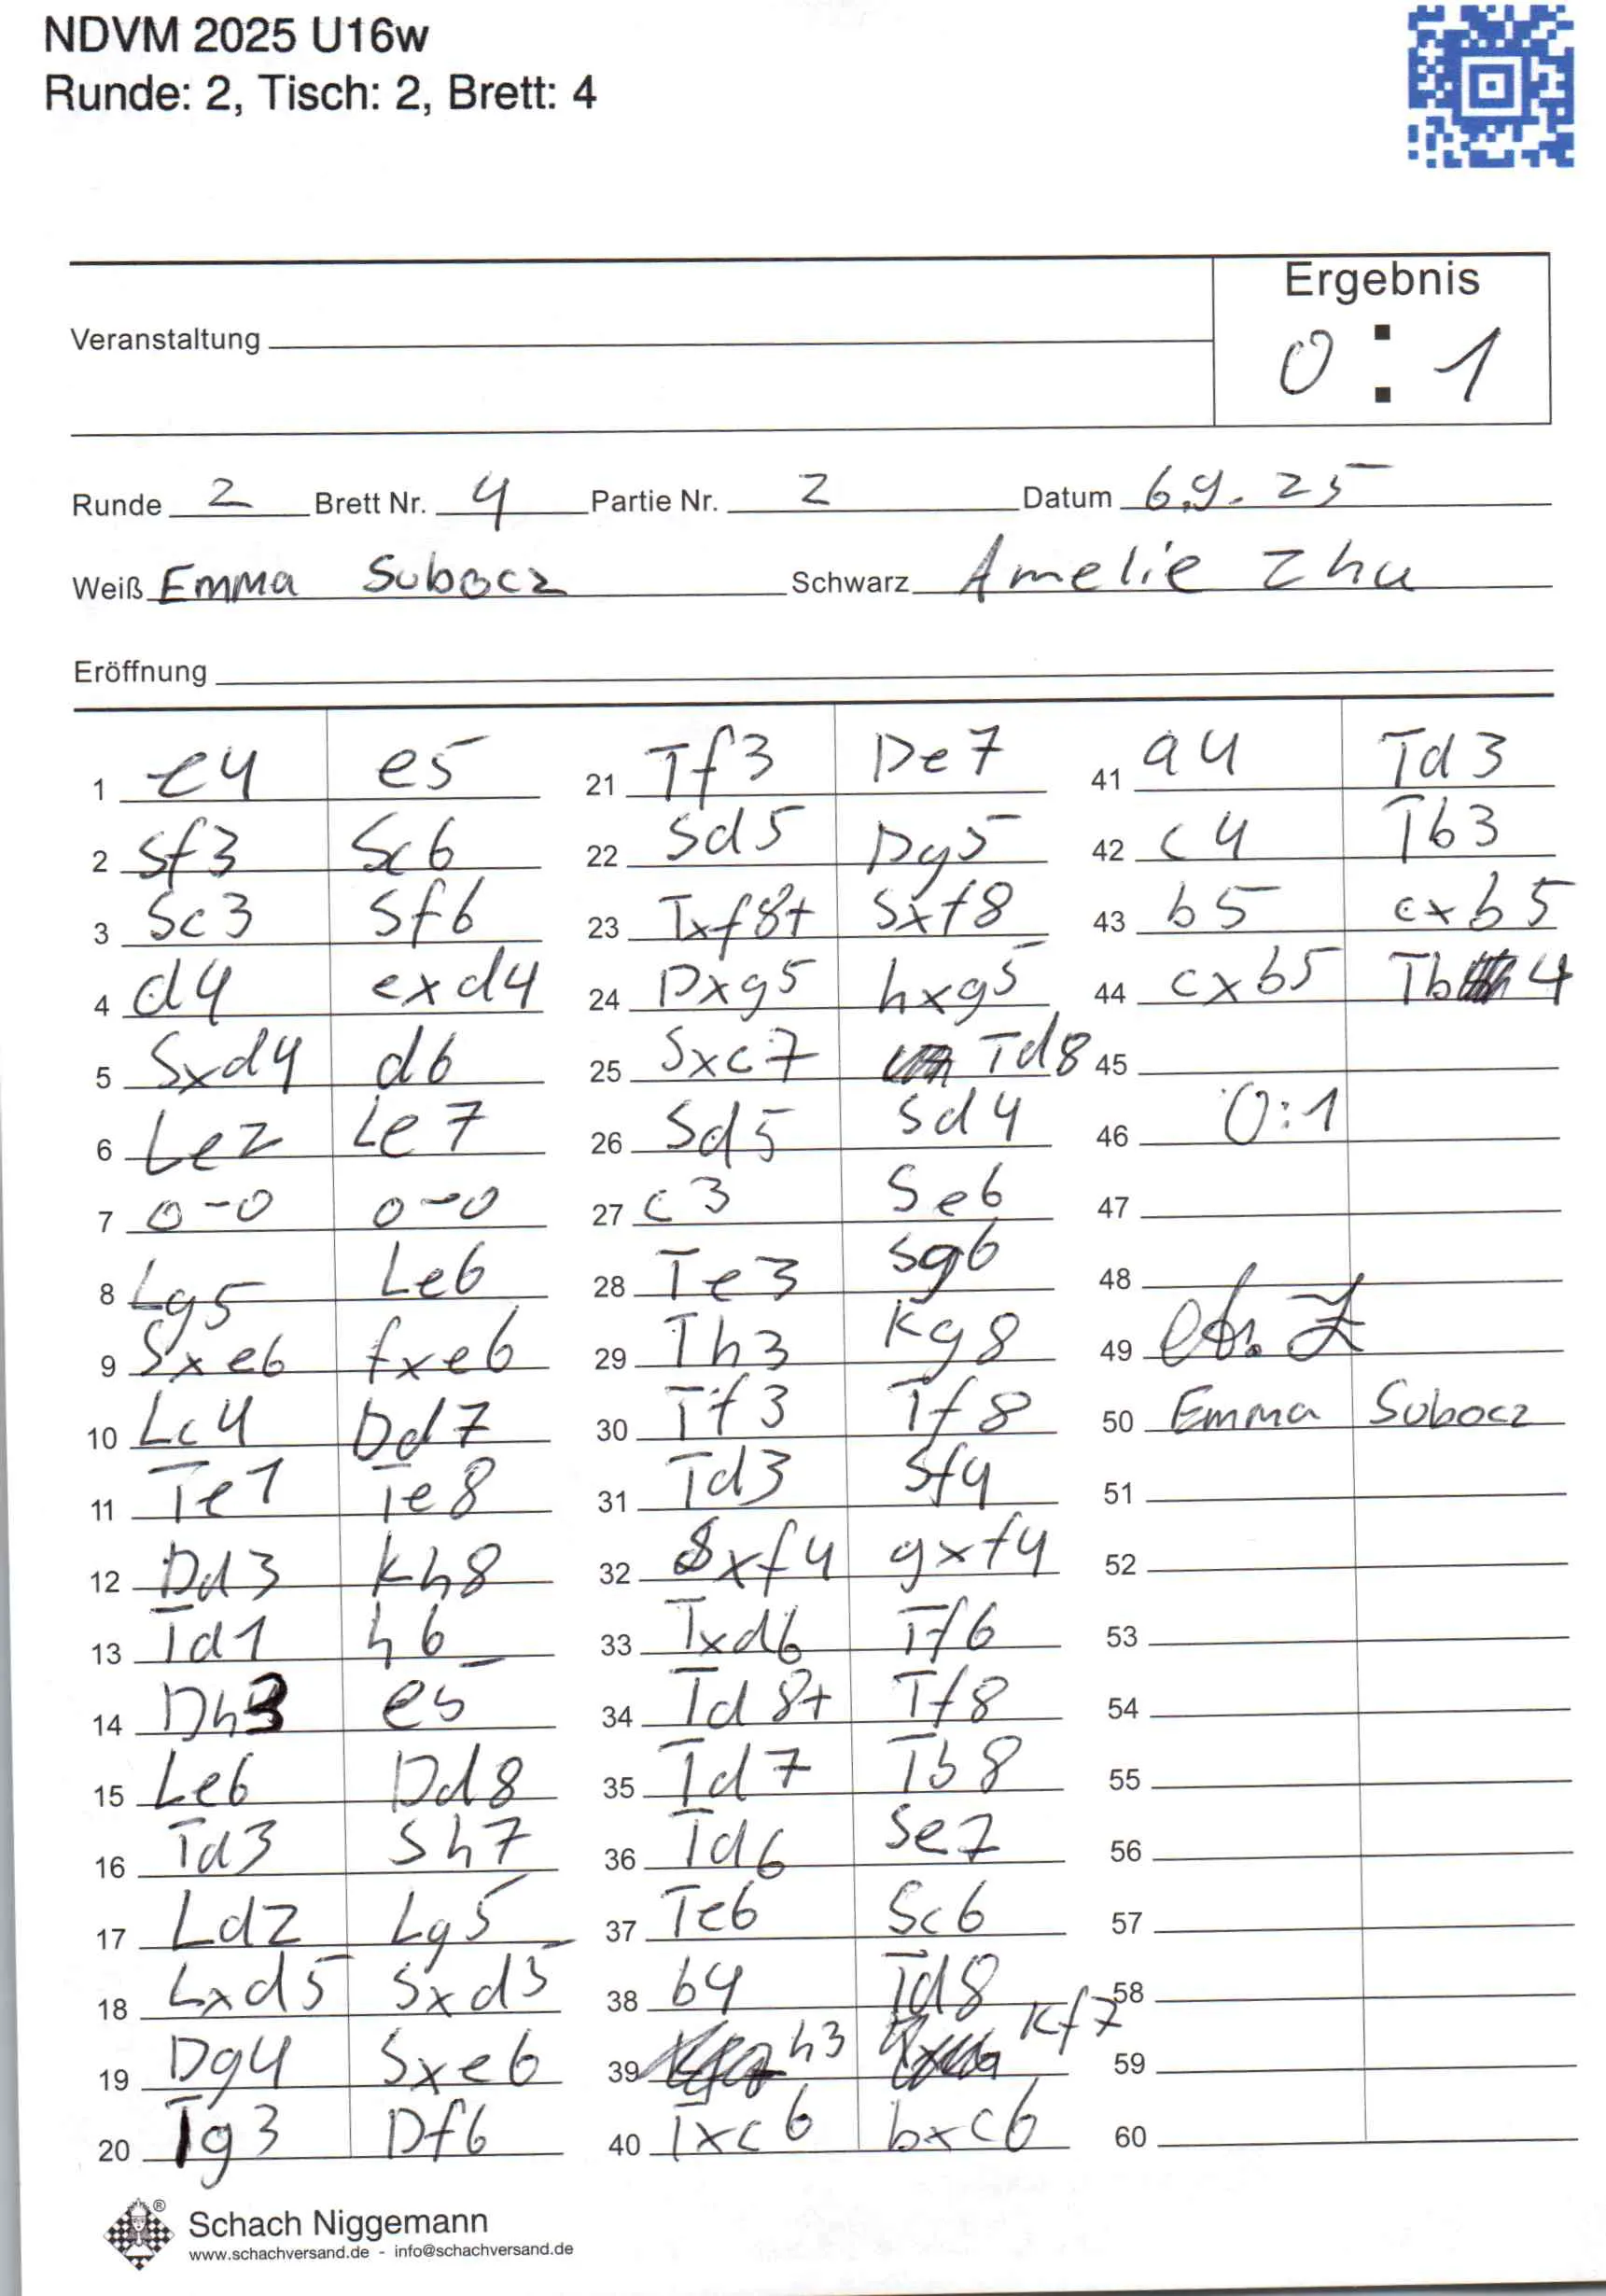 NDVM 2025 U16w
Runde: 2, Tisch: 2, Brett: 4
Ergebnis
0 : 1
Veranstaltung
Runde 2 Brett Nr. 4 Partie Nr. 2 Datum 6.9.25
Weiß Emma Subocz Schwarz Amelie Zhu
Eröffnung
1 e4 e5
2 Sf3 Sc6
3 Sc3 Sf6
4 d4 exd4
5 Sxd4 d6
6 Le2 Le7
7 0-0 0-0
8 Lg5 Le6
9 Sxe6 fxe6
10 Lc4 Dd7
11 Te1 Te8
12 Dd3 Kh8
13 Td1 h6
14 Dh3 e5
15 Le6 Dd8
16 Td3 Sh7
17 Ld2 Lg5
18 Lxd5 Sxd5
19 Dg4 Sxe6
20 Tg3 Df6
21 Tf3 De7
22 Sd5 Dg5
23 Txf8+ Sxf8
24 Dxg5 hxg5
25 Sxc7 Td8
26 Sd5 Sd4
27 c3 Se6
28 Te3 Sg6
29 Th3 Kg8
30 Tf3 Tf8
31 Td3 Sf4
32 Sxf4 gxf4
33 Txd6 Tf6
34 Td8+ Tf8
35 Td7 Tb8
36 Td6 Se7
37 Te6 Sc6
38 b4 Td8
39 h3 Kf7
40 Txc6 bxc6
41 a4 Td3
42 c4 Tb3
43 b5 cxb5
44 cxb5 Tb4
45
46 0:1
47
48
49
50 Emma Subocz
51
52
53
54
55
56
57
58
59
60
Schach Niggemann
www.schachversand.de - info@schachversand.de